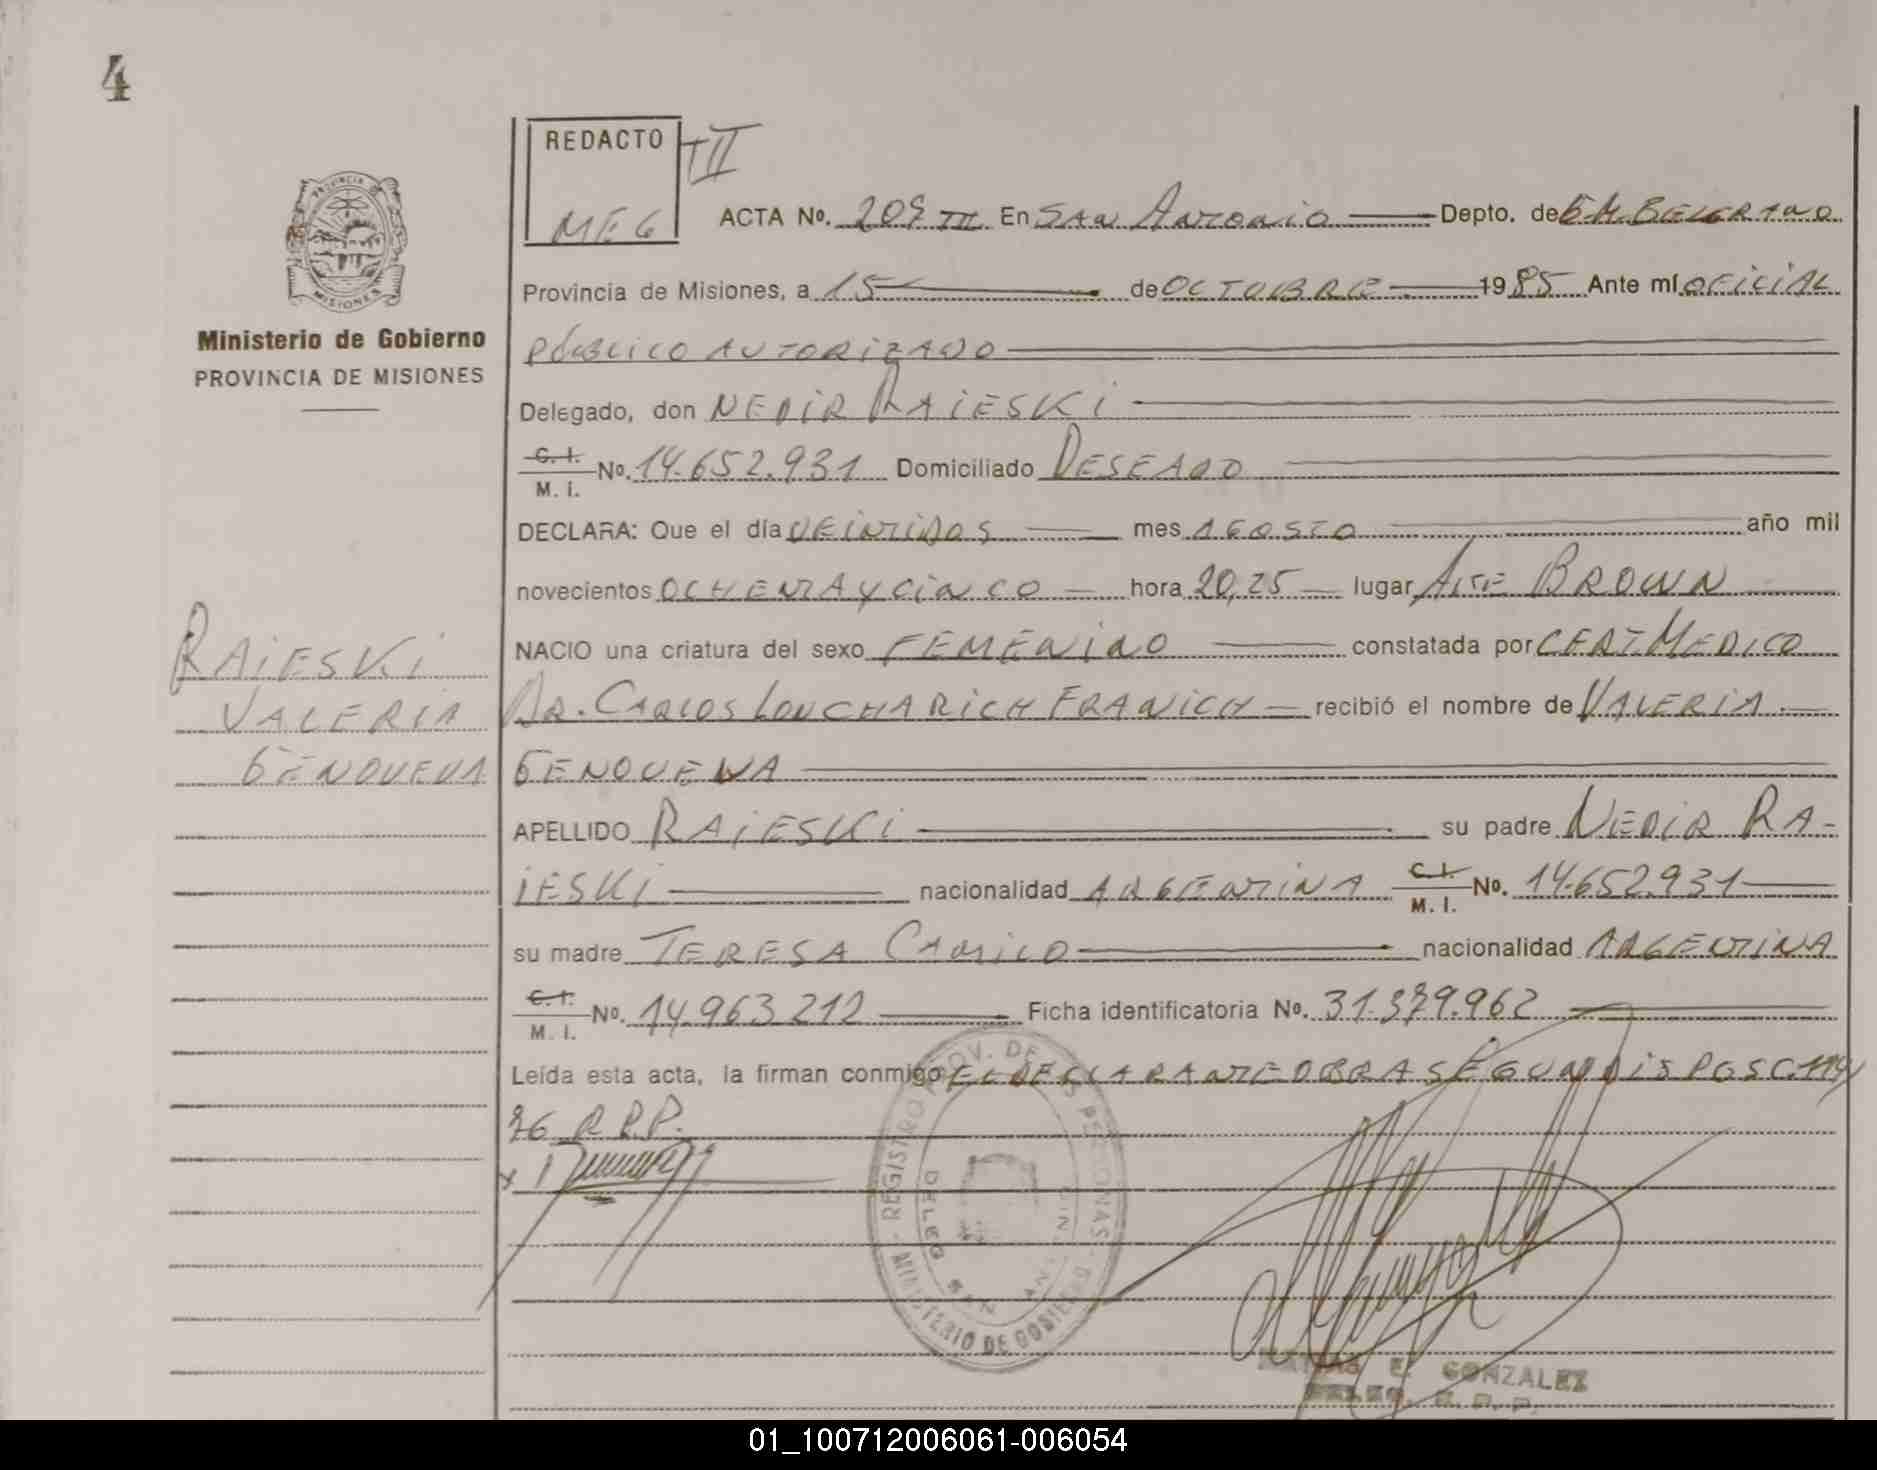 4
REDACTO
TII
MEG
ACTA No. 209 TII En SAN ANTONIO Depto. de G.M. BELGRANO
PROVINCIA DE
MISIONES
Provincia de Misiones, a 15 de OCTUBRE 1985 Ante mí OFICIAL
Ministerio de Gobierno
PROVINCIA DE MISIONES
PÚBLICO AUTORIZADO
Delegado, don NEDIR RAIESKI
C. I.
M. I.
No. 14.652.931 Domiciliado DESEADO
DECLARA: Que el día VEINTIDOS mes AGOSTO año mil
novecientos OCHENTA Y CINCO hora 20,25 lugar ALTE BROWN
NACIO una criatura del sexo FEMENINO constatada por CERT. MEDICO
RAIESKI
VALERIA
GENOVEVA
DR. CARLOS LOUCHARICH FRANICH recibió el nombre de VALERIA
GENOVEVA
APELLIDO RAIESKI su padre NEDIR RA-
IESKI nacionalidad ARGENTINA C. I.
M. I. No. 14.652.931
su madre TERESA CAMILO nacionalidad ARGENTINA
C. I.
M. I.
No. 14.963.212 Ficha identificatoria No. 31.379.962
Leída esta acta, la firman conmigo EL DECLARANTE OBRA SEGUN DISPOSC. 114/
76 R.P.P.
REGISTRO PROV. DE LAS PERSONAS
MINISTERIO DE GOBIERNO
DELEG. SAN ANT
E. GONZALEZ
DELEG. R. P. P.
01_100712006061-006054